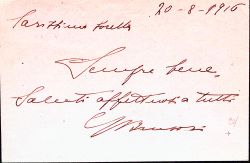 20-8-1916
Carissimo
Sempre bene,
Saluti affettuosi a tutti